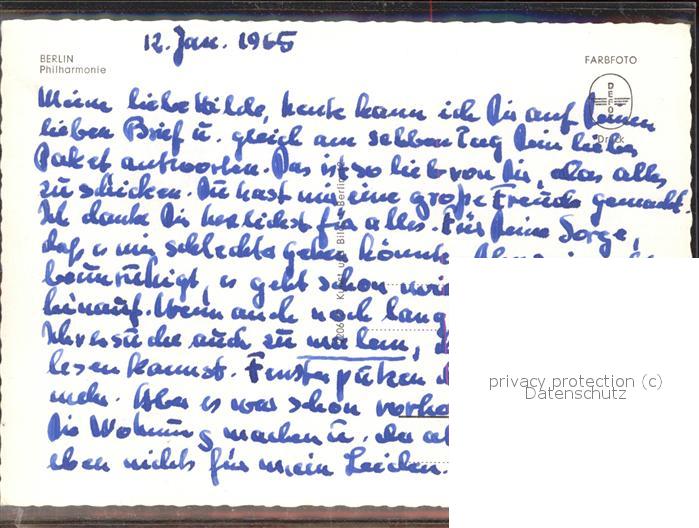 12. Jan. 1965
BERLIN
Philharmonie
FARBFOTO
DEFOT
Druck
Meine liebe Hilde, heute kann ich Dir auf Deinen
lieben Brief u. gleich am selben Tag Dein liebes
Paket antworten. Das ist so lieb von Dir, das alles
zu schicken. Du hast mir eine große Freude gemacht.
Ich danke Dir herzlichst für alles. Für Deine Sorge,
daß es mir schlechter gehen könnte
beunruhigt, es geht schon
hinauf. Wenn auch noch lang
Ich versuche auch zu malen,
lesen kannst. Fensterputzen
mehr. Aber es war schon
die Wohnung machen u. da
eben nichts für mein Leiden.
Kunst und Bild Berlin
privacy protection (c)
Datenschutz